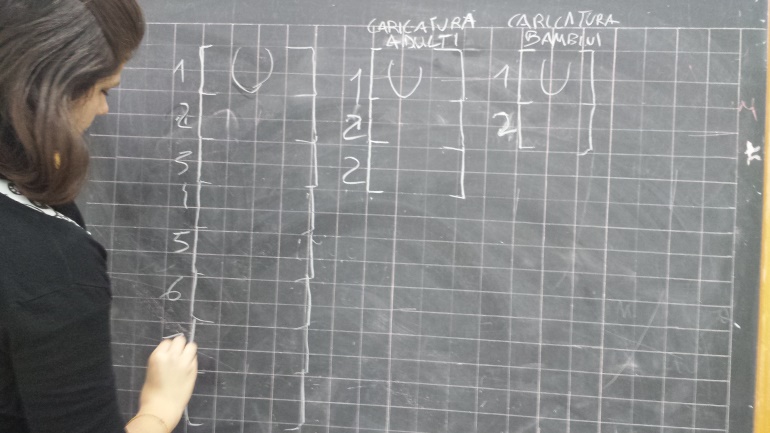 CARICATURA
ADULTI
CARICATURA
BAMBINI
1
2
3
5
6
1
2
2
1
2